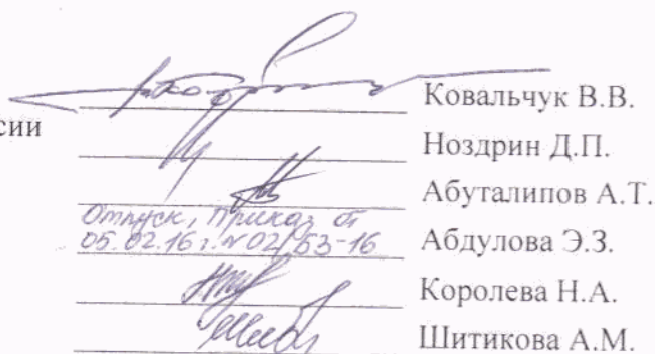 Ковальчук В.В.
сии
Ноздрин Д.П.
Абуталипов А.Т.
Отпуск, Приказ от
05.02.16 г. №02/53-16 Абдулова Э.З.
Королева Н.А.
Шитикова А.М.